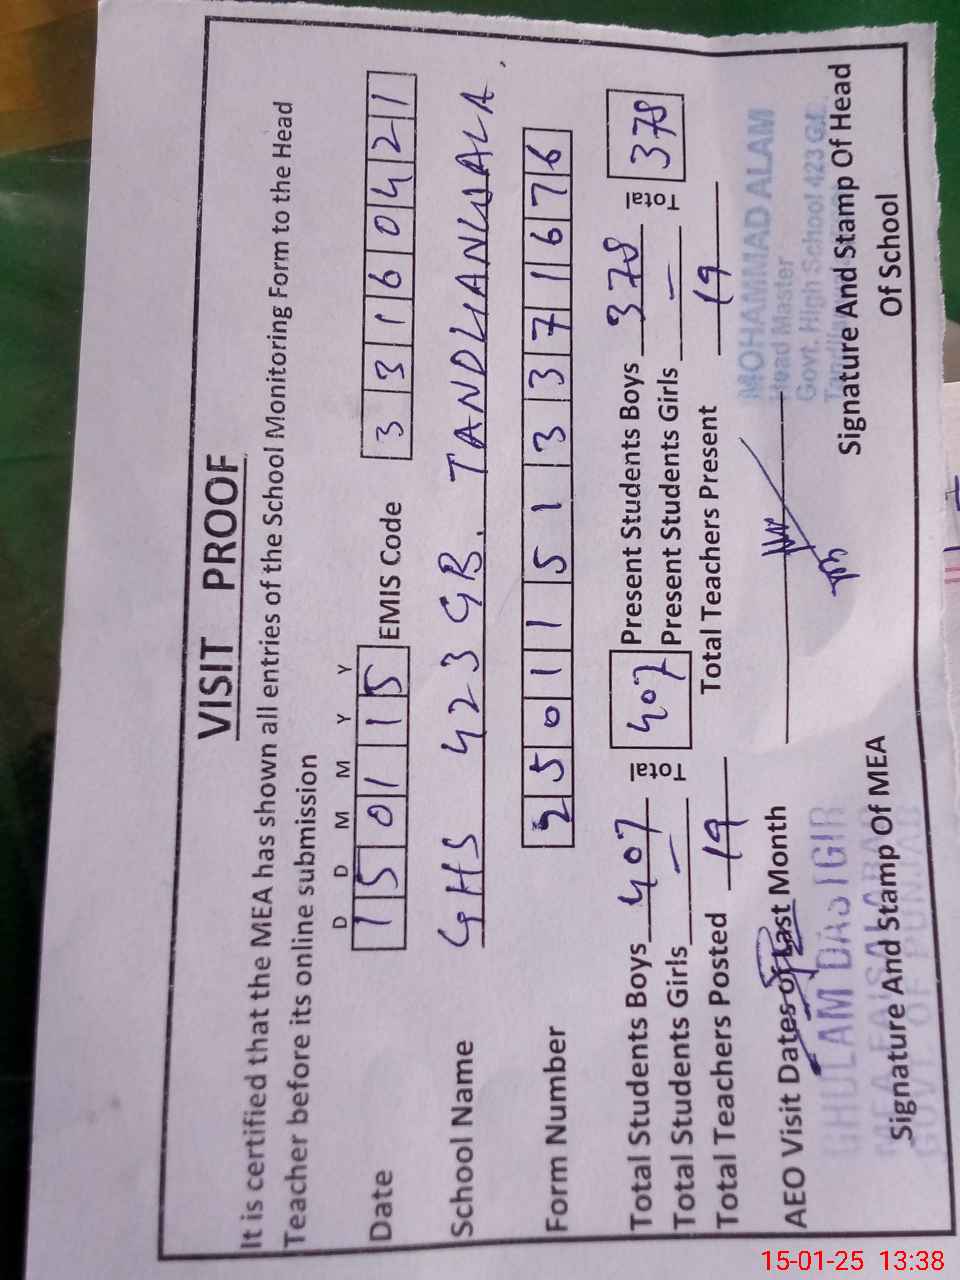 VISIT PROOF
It is certified that the MEA has shown all entries of the School Monitoring Form to the Head
Teacher before its online submission
D D M M Y Y
Date 150115 EMIS Code 33160421
School Name GHS 423 GB. TANDLIANWALA.
Form Number 25011513371676
Total Students Boys 407 Total 407 Present Students Boys 378 Total 378
Total Students Girls — Present Students Girls —
Total Teachers Posted 19 Total Teachers Present 19
AEO Visit Dates of Last Month
GHULAM DASTGIR
MEA FAISALABAD
GOVT. OF PUNJAB
Signature And Stamp Of MEA
MOHAMMAD ALAM
Head Master
Govt. High School 423 G.B.
Signature And Stamp Of Head
Of School
15-01-25 13:38